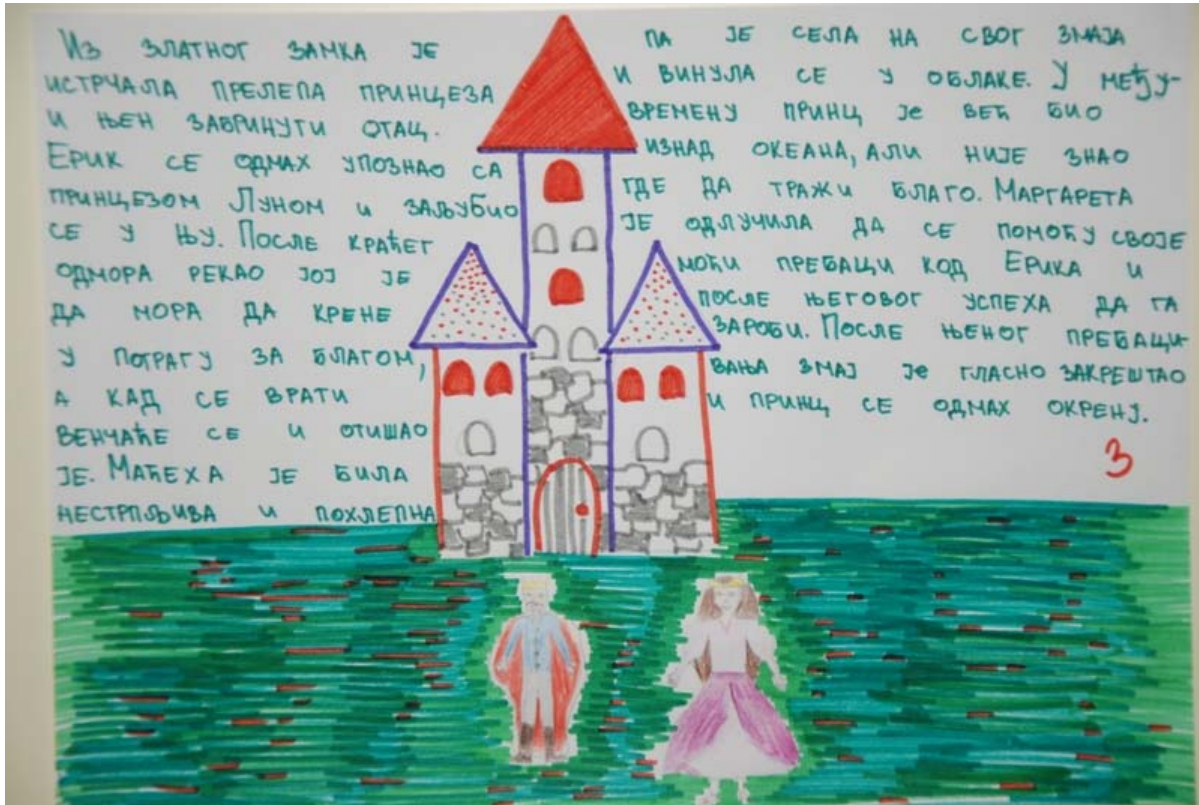 Из златног замка је
истрчала прелепа принцеза
и њен забринути отац.
Ерик се одмах упознао са
принцезом Луном и заљубио
се у њу. После краћег
одмора рекао јој је
да мора да крене
у потрагу за благом,
а кад се врати
венчаће се и отишао
је. Маћеха је била
нестрпљива и похлепна
па је села на свог змаја
и винула се у облаке. У међу-
времену принц је већ био
изнад океана, али није знао
где да тражи благо. Маргарета
је одлучила да се помоћу своје
моћи пребаци код Ерика и
после његовог успеха да га
зароби. После њеног пребаци-
вања змај је гласно закрештао
и принц се одмах окрену.
3